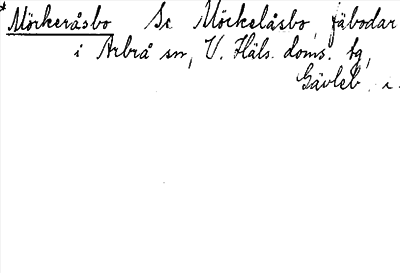 *Mörkeråsbo Se Mörkelåsbo, fäbodar
i Arbrå sn, V. Häls. doms. tg,
Gävleb.